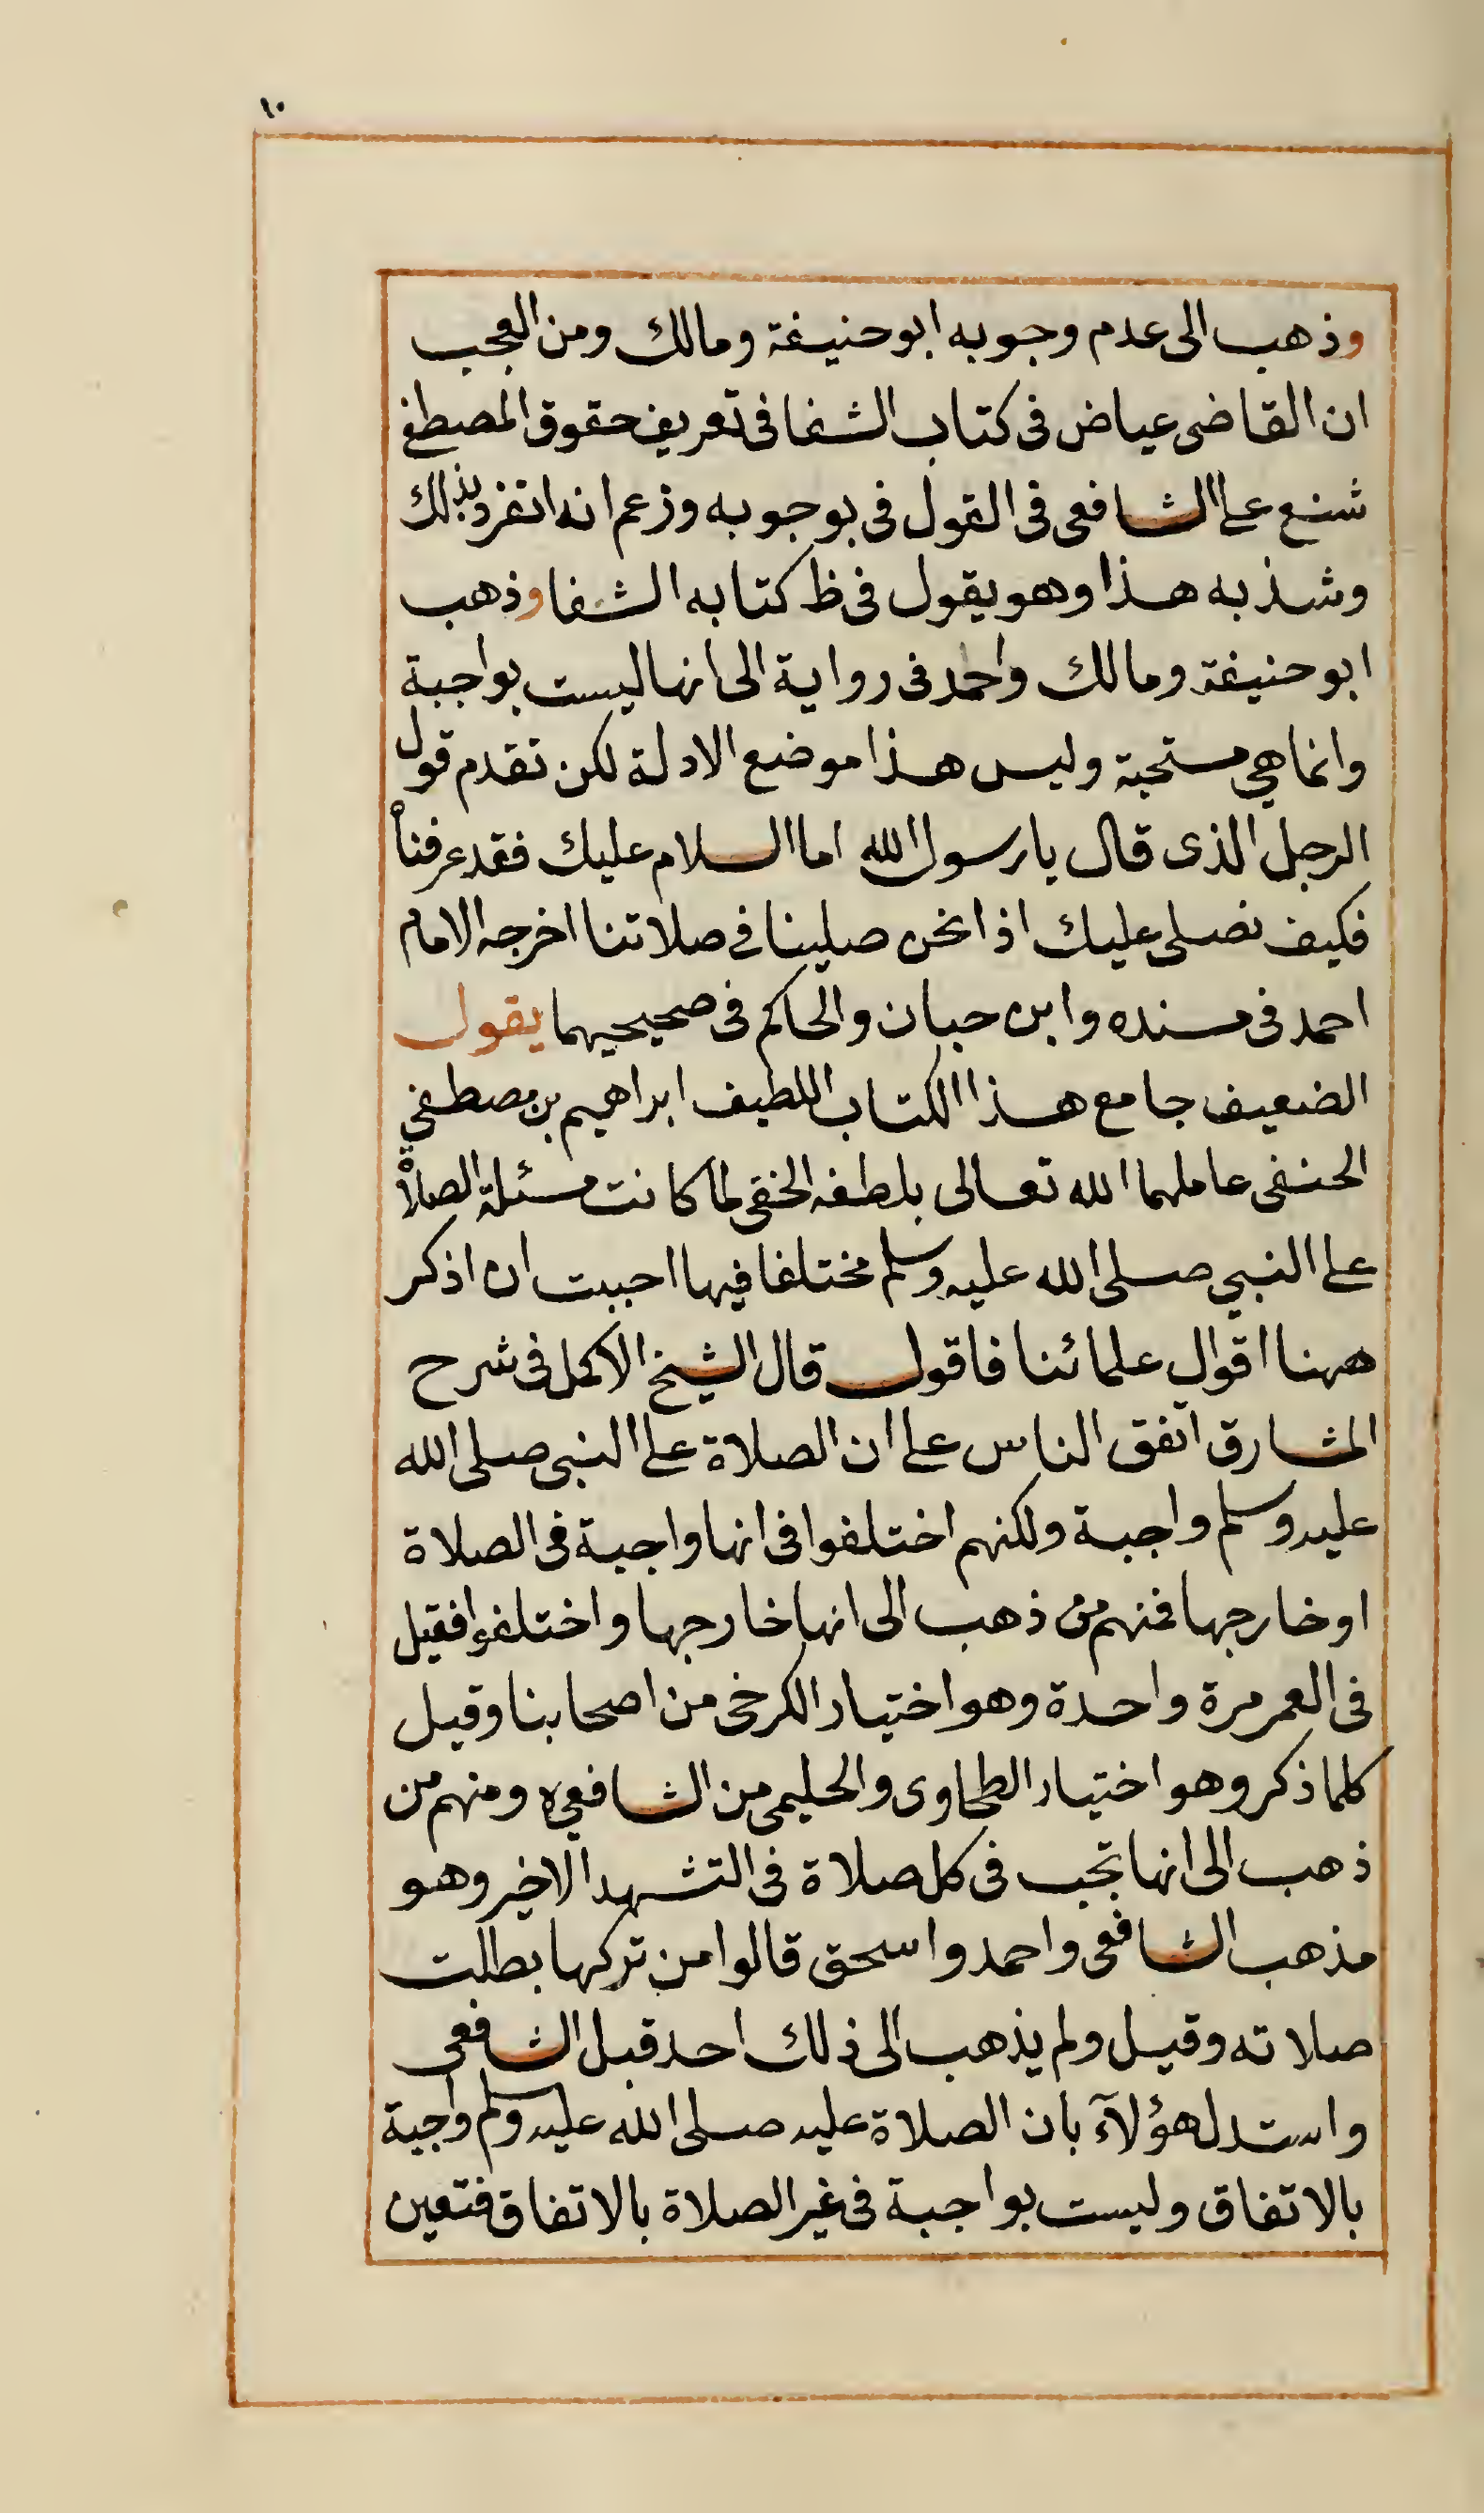 ١٠
وذهب الى عدم وجوبه ابو حنيفة ومالك ومن العجب
ان القاضى عياض فى كتاب الشفا فى تعريف حقوق المصطفى
شنع على الشافعى فى القول فى بوجوبه وزعم انه انفرد بذلك
وشذ به هذا وهو يقول فى ظ كتابه الشفا وذهب
ابو حنيفة ومالك واحمد فى رواية الى انها ليست بواجبة
وانما هي مستحبة وليس هذا موضع الادلة لكن تقدم قول
الرجل الذى قال يا رسول الله اما السلام عليك فقد عرفناه
فكيف نصلى عليك اذا نحن صلينا فى صلاتنا اخرجه الامام
احمد فى مسنده وابن حبان والحاكم فى صحيحيهما يقول
الضعيف جامع هذا الكتاب اللطيف ابراهيم بن مصطفى
الحنفى عاملهما الله تعالى بلطفه الخفى لما كانت مسئلة الصلاة
على النبي صلى الله عليه وسلم مختلفا فيها احببت ان اذكر
ههنا اقوال علمائنا فاقول قال الشيخ الاكمل فى شرح
المشارق اتفق الناس على ان الصلاة على النبى صلى الله
عليه وسلم واجبة ولكنهم اختلفوا فى انها واجبة فى الصلاة
او خارجها فمنهم من ذهب الى انها خارجها واختلفوا فقيل
فى العمر مرة واحدة وهو اختيار الكرخى من اصحابنا وقيل
كلما ذكر وهو اختيار الطحاوى والحليمى من الشافعيه ومنهم من
ذهب الى انها تجب فى كل صلاة فى التشهد الاخير وهو
مذهب الشافعى واحمد واسحق قالوا من تركها بطلت
صلاته وقيل ولم يذهب الى ذلك احد قبل الشافعى
واستدل هؤلآء بان الصلاة عليه صلى الله عليه وسلم واجبة
بالاتفاق وليست بواجبة فى غير الصلاة بالاتفاق فتعين